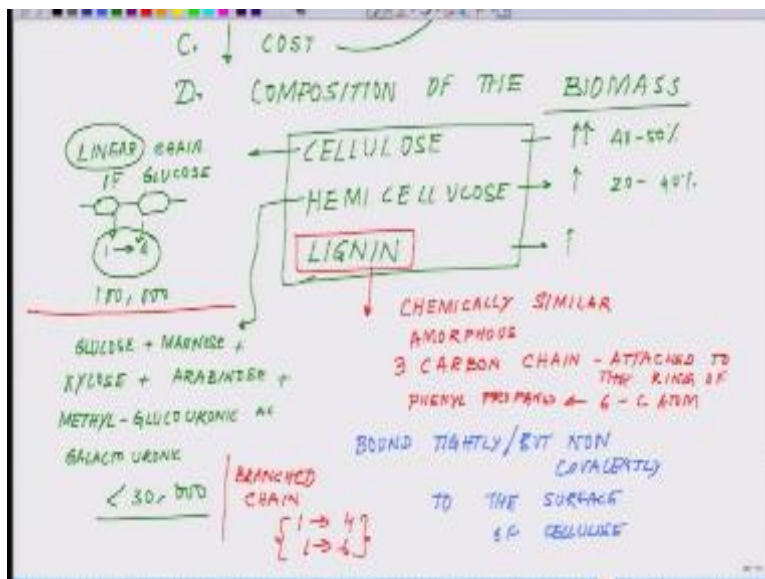 C. ↓ COST
D. COMPOSITION OF THE BIOMASS
LINEAR CHAIN
IF GLUCOSE
1 → 4
100,000
CELLULOSE ↑↑ 40-50%
HEMI CELLULOSE → ↑ 20-40%
LIGNIN → ↑
GLUCOSE + MANNOSE +
XYLOSE + ARABINOSE +
METHYL-GLUCOURONIC AC
GALACTO URONIC
< 30,000
BRANCHED
CHAIN
{1 → 4
1 → 6}
CHEMICALLY SIMILAR
AMORPHOUS
3 CARBON CHAIN - ATTACHED TO
THE RING OF
PHENYL PROPANO ← 6-C ATOM
BOUND TIGHTLY/BUT NON
COVALENTLY
TO THE SURFACE
OF CELLULOSE